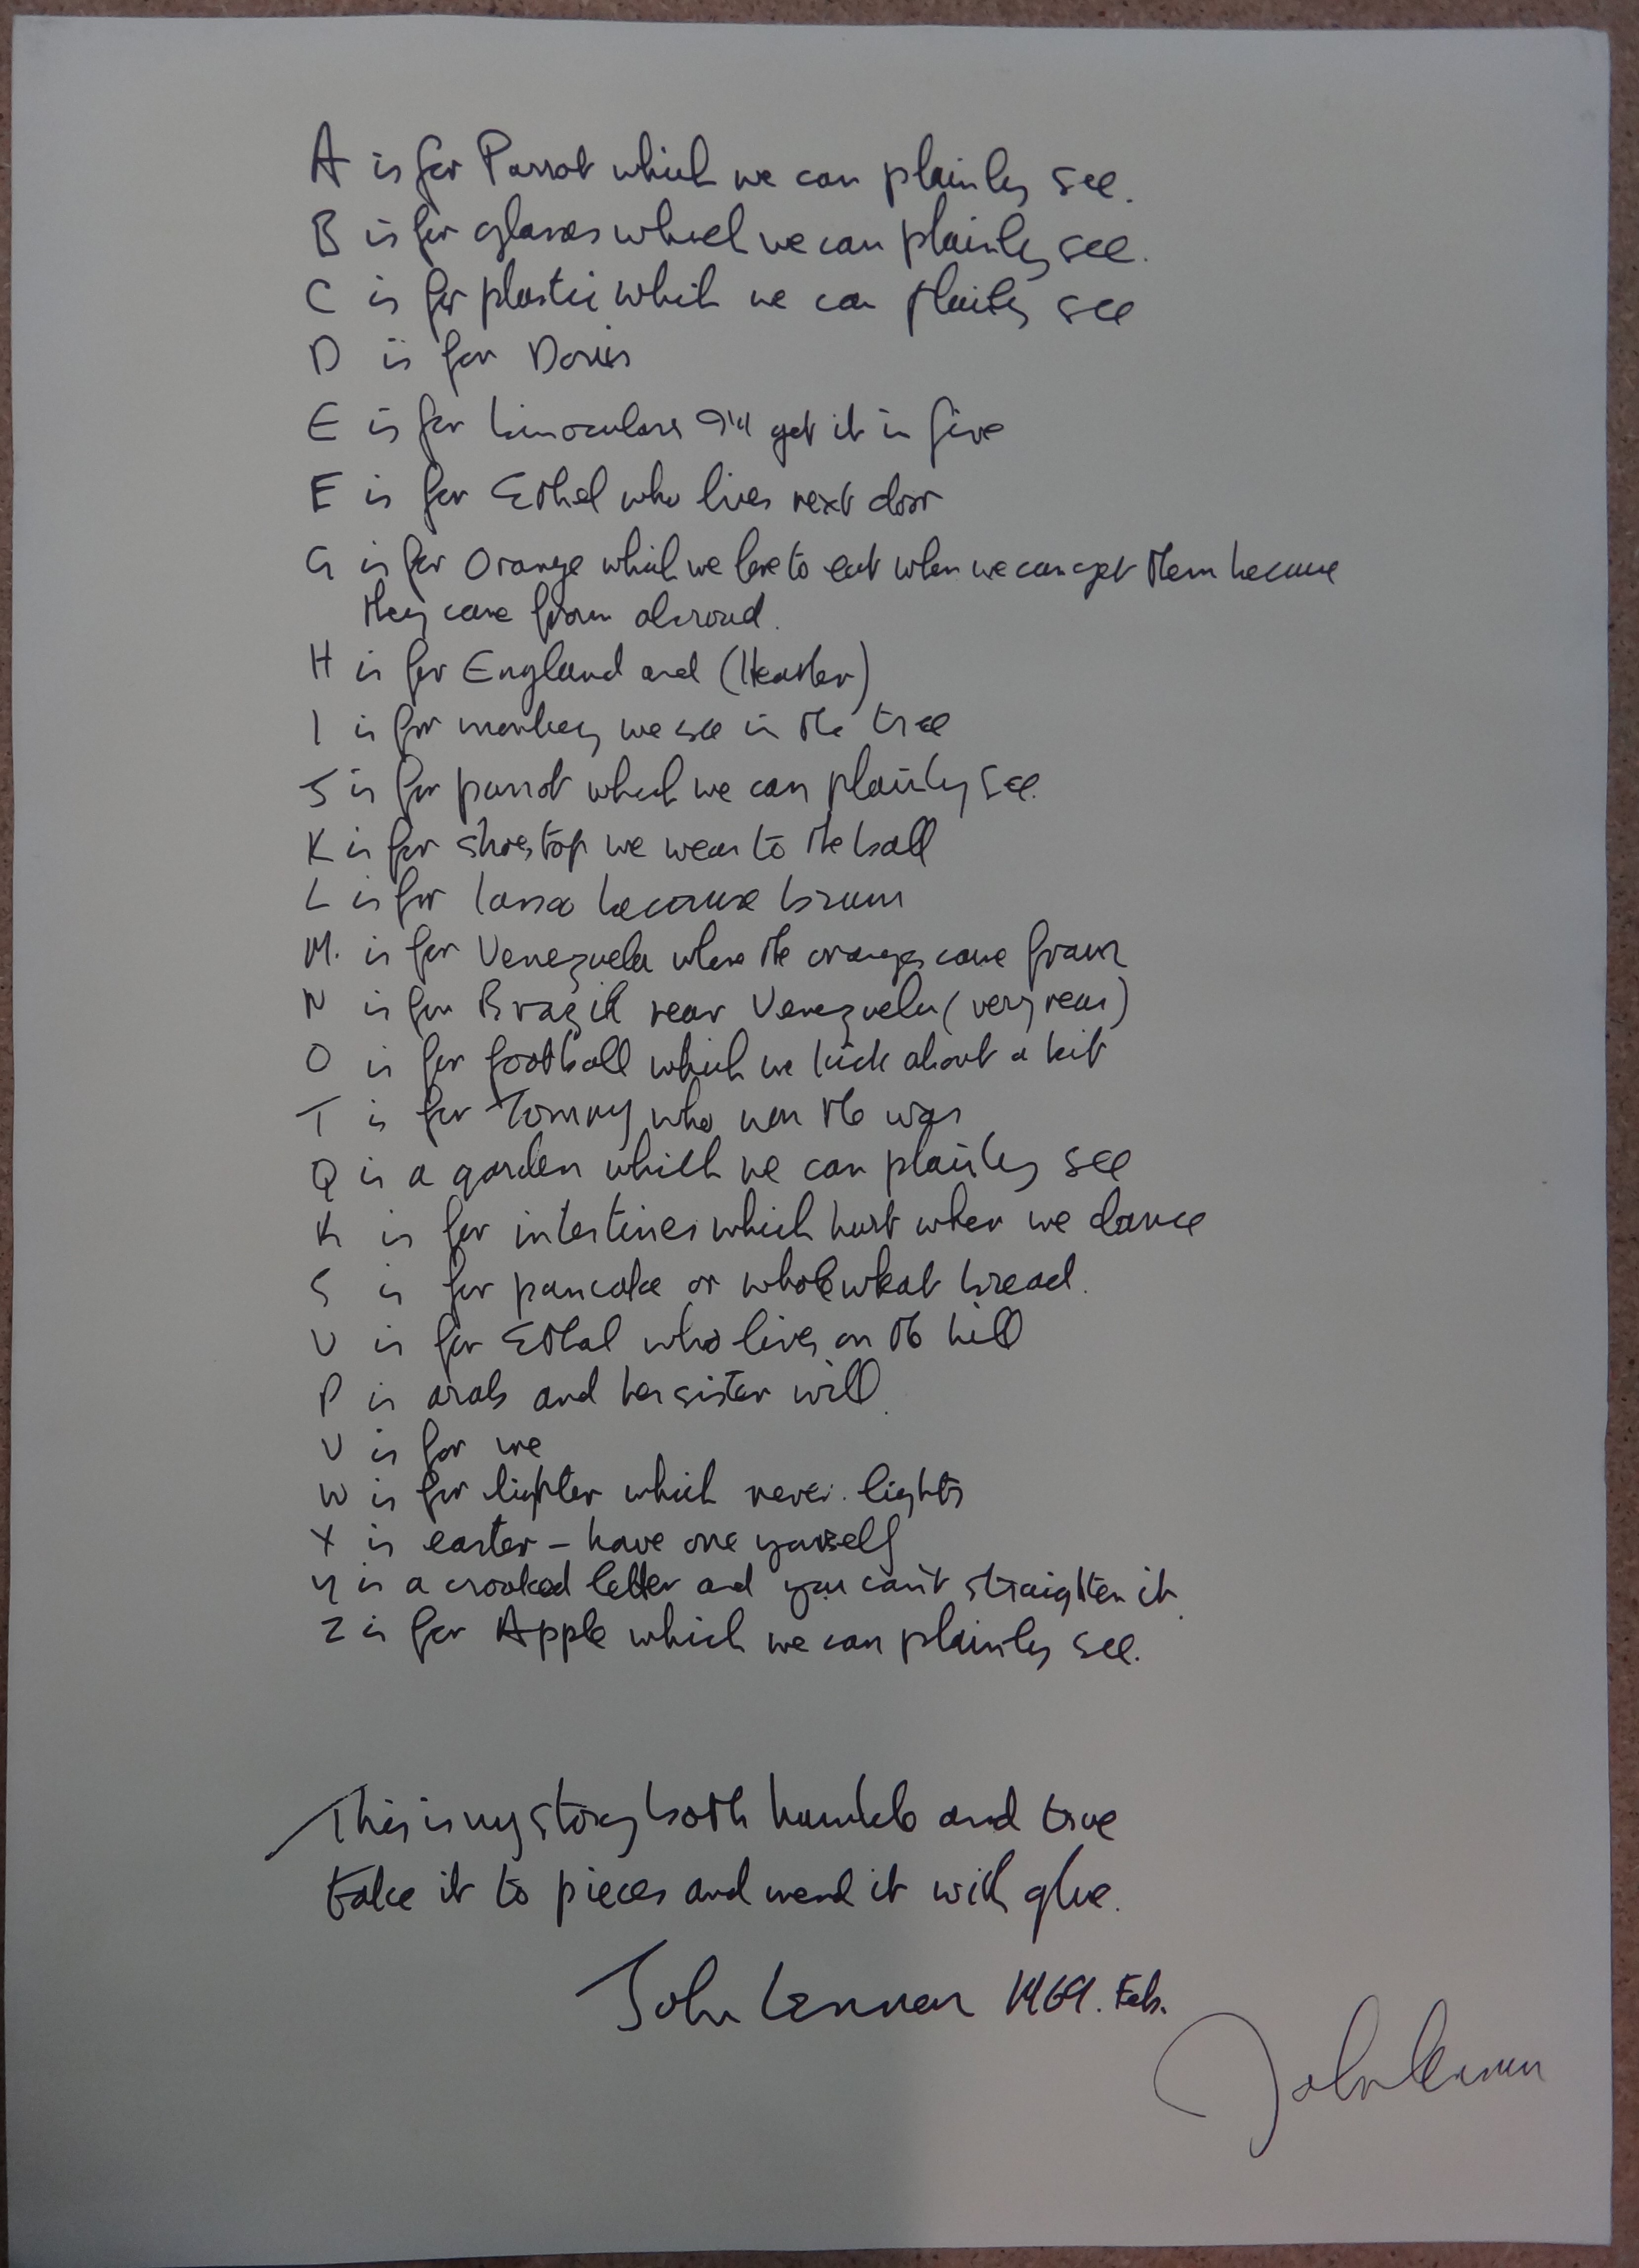 A is for Parrot which we can plainly see.
B is for glasses which we can plainly see.
C is for plastic which we can plainly see
D is for Doris
E is for binoculars I'll get it in five
E is for Ethel who lives next door
G is for Orange which we love to eat when we can get them because
they come from abroad.
H is for England and (Heather)
I is for monkey we see in the tree
J is for parrot which we can plainly see.
K is for shoestop we wear to the ball
L is for because brown
M. is for Venezuela where the oranges come from
N is for Brazil near Venezuela (very near)
O is for football which we kick about a bit
T is for Tommy who won the war
Q is a garden which we can plainly see
R is for intestines which hurt when we dance
S is for pancake or wholewheat bread.
U is for Ethel who lives on the hill
P is arab and her sister will.
V is for me
W is for lighter which never lights
X is easter – have one yourself
Y is a crooked letter and you can't straighten it.
Z is for Apple which we can plainly see.
This is my story both humble and true
take it to pieces and mend it with glue.
John Lennon 1969. Feb.
John Lennon